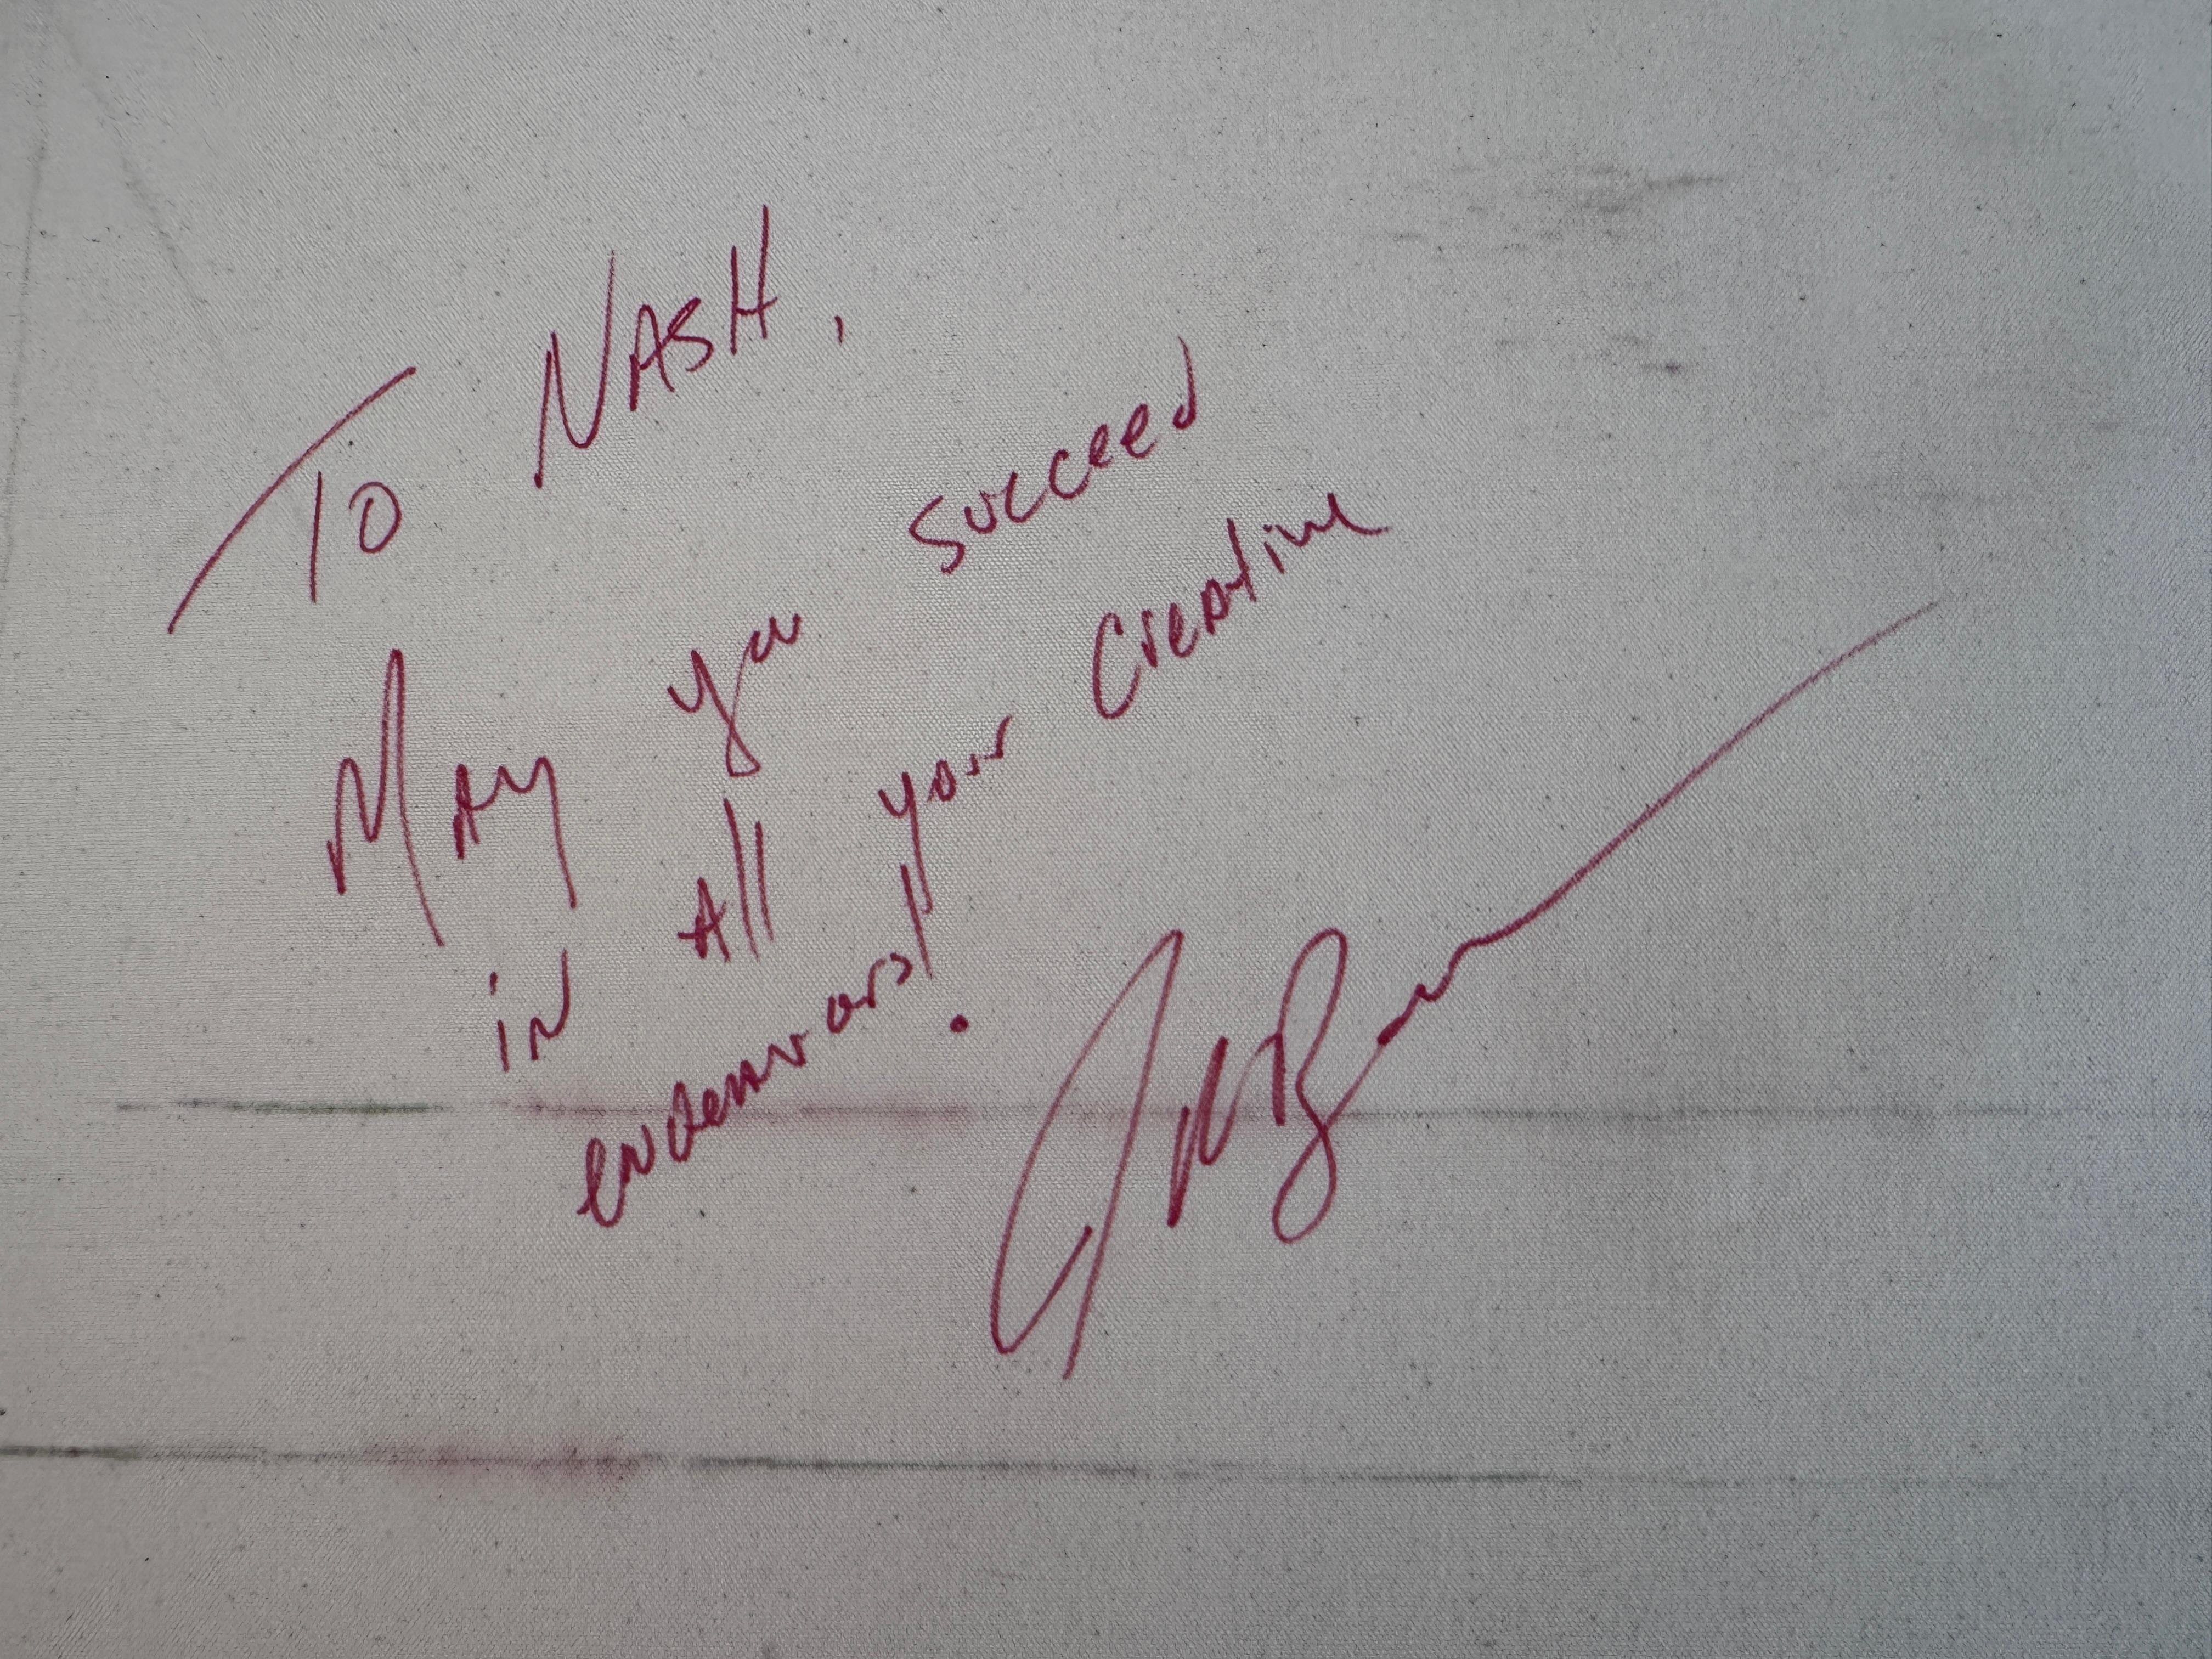 To NASH,
MAy you succeed
in All your Creative
endeavors!